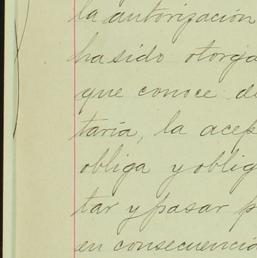 la autorización
ha sido otorga
que conoce de
taria, la acep
obliga y oblig
tar y pasar p
en consecuencia